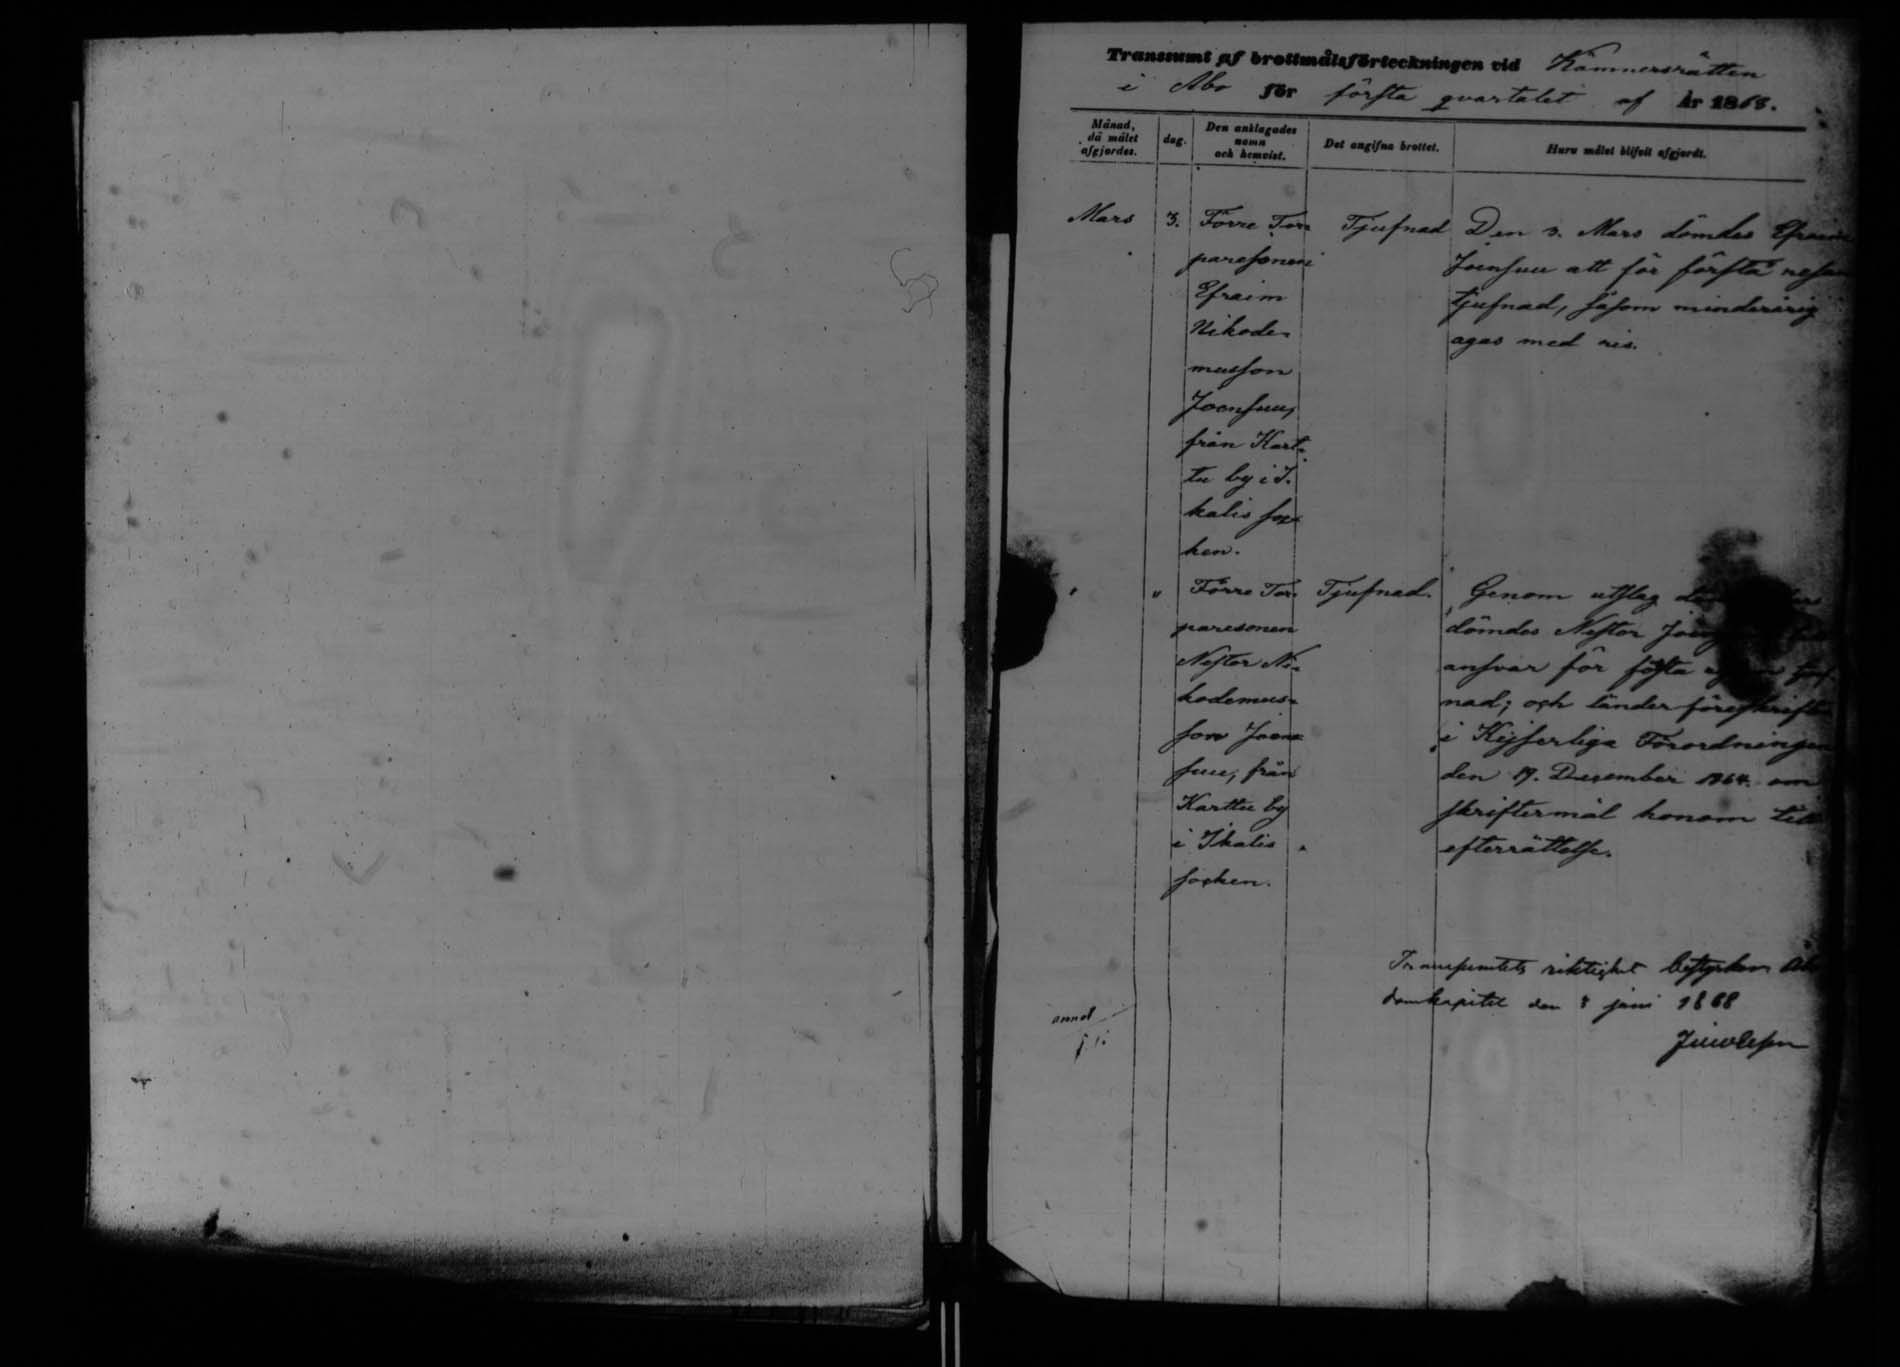 Transsumt af brottmålsförteckningen vid Kämnersrätten
i Åbo för första qvartalet af År 1868.
Månad, då målet afgjordes.
dag.
Den anklagades namn och hemvist.
Det angifna brottet.
Huru målet blifvit afgjordt.
Mars 3. Förre Tor-
paresonen
Efraim
Nikode-
musson
Joensuu,
från Kart-
tu by i I-
kalis soc-
ken.
Tjufnad
Den 3. Mars dömdes Efraim
Joensuu att för första resan
tjufnad, såsom minderårig
agas med ris.
" " Förre Tor-
paresonen
Nestor Ni-
kodemus-
son Joen-
suu, från
Karttu by
i Ikalis
socken.
Tjufnad.
Genom utslag
dömdes Nestor
ansvar för första
nad; och länder föreskrift
i Kejserliga Förordningen
den 19. December 1864 om
skriftermål honom till
efterrättelse.
Transsumtets riktighet bestyrker. Åbo
domkapitel den 8 juni 1868